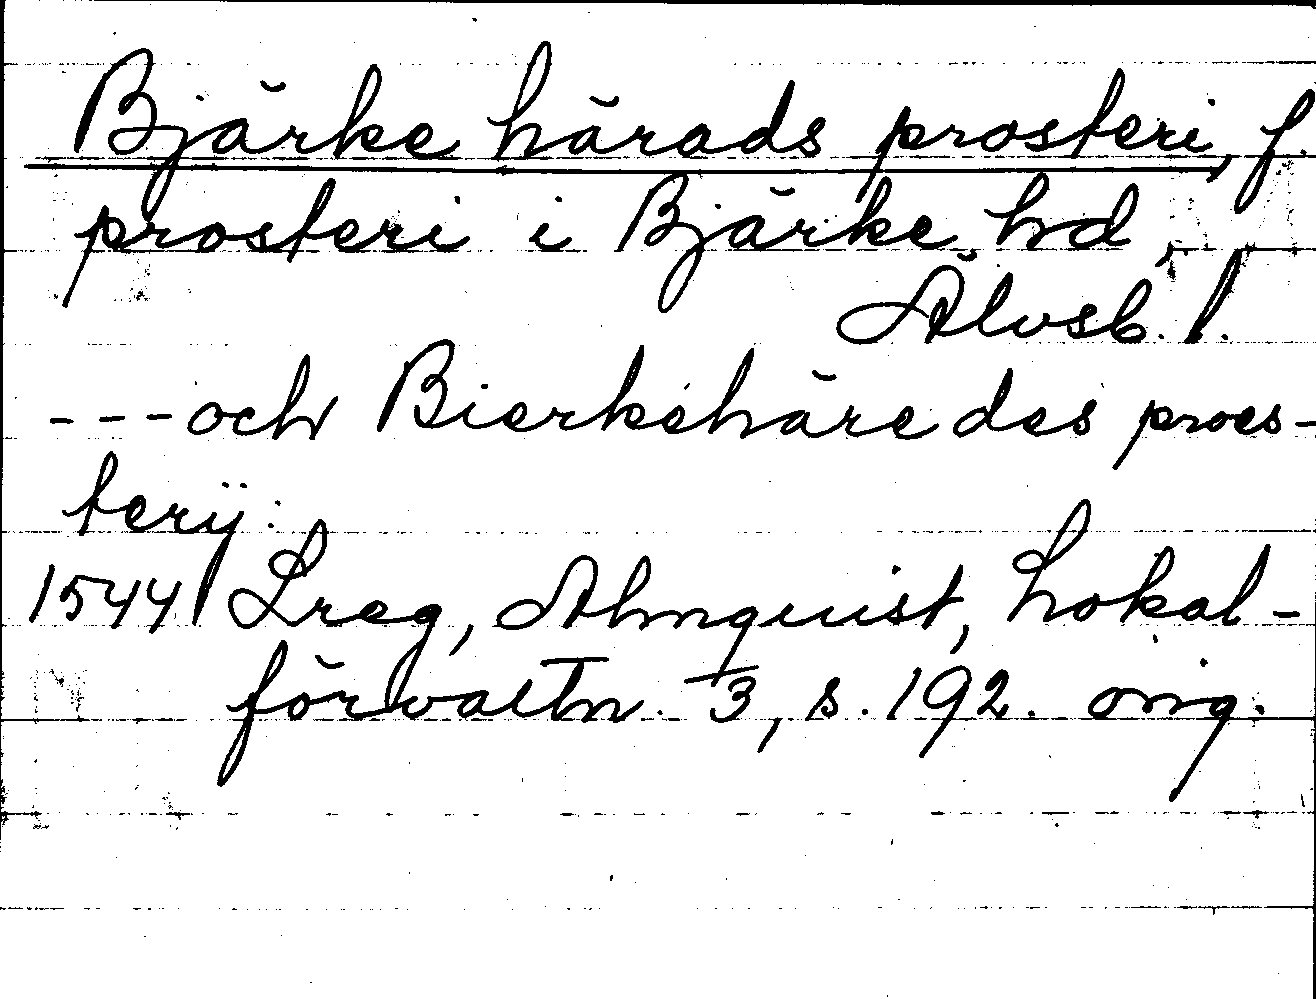 Bjärke härads prosteri, f.
prosteri i Bjärke hd,
Älvsb. l.
---och Bierkehäredes proes-
terÿ:
1544 Lreg, Almquist, Lokal-
förvaltn. 3, s. 192. orig.